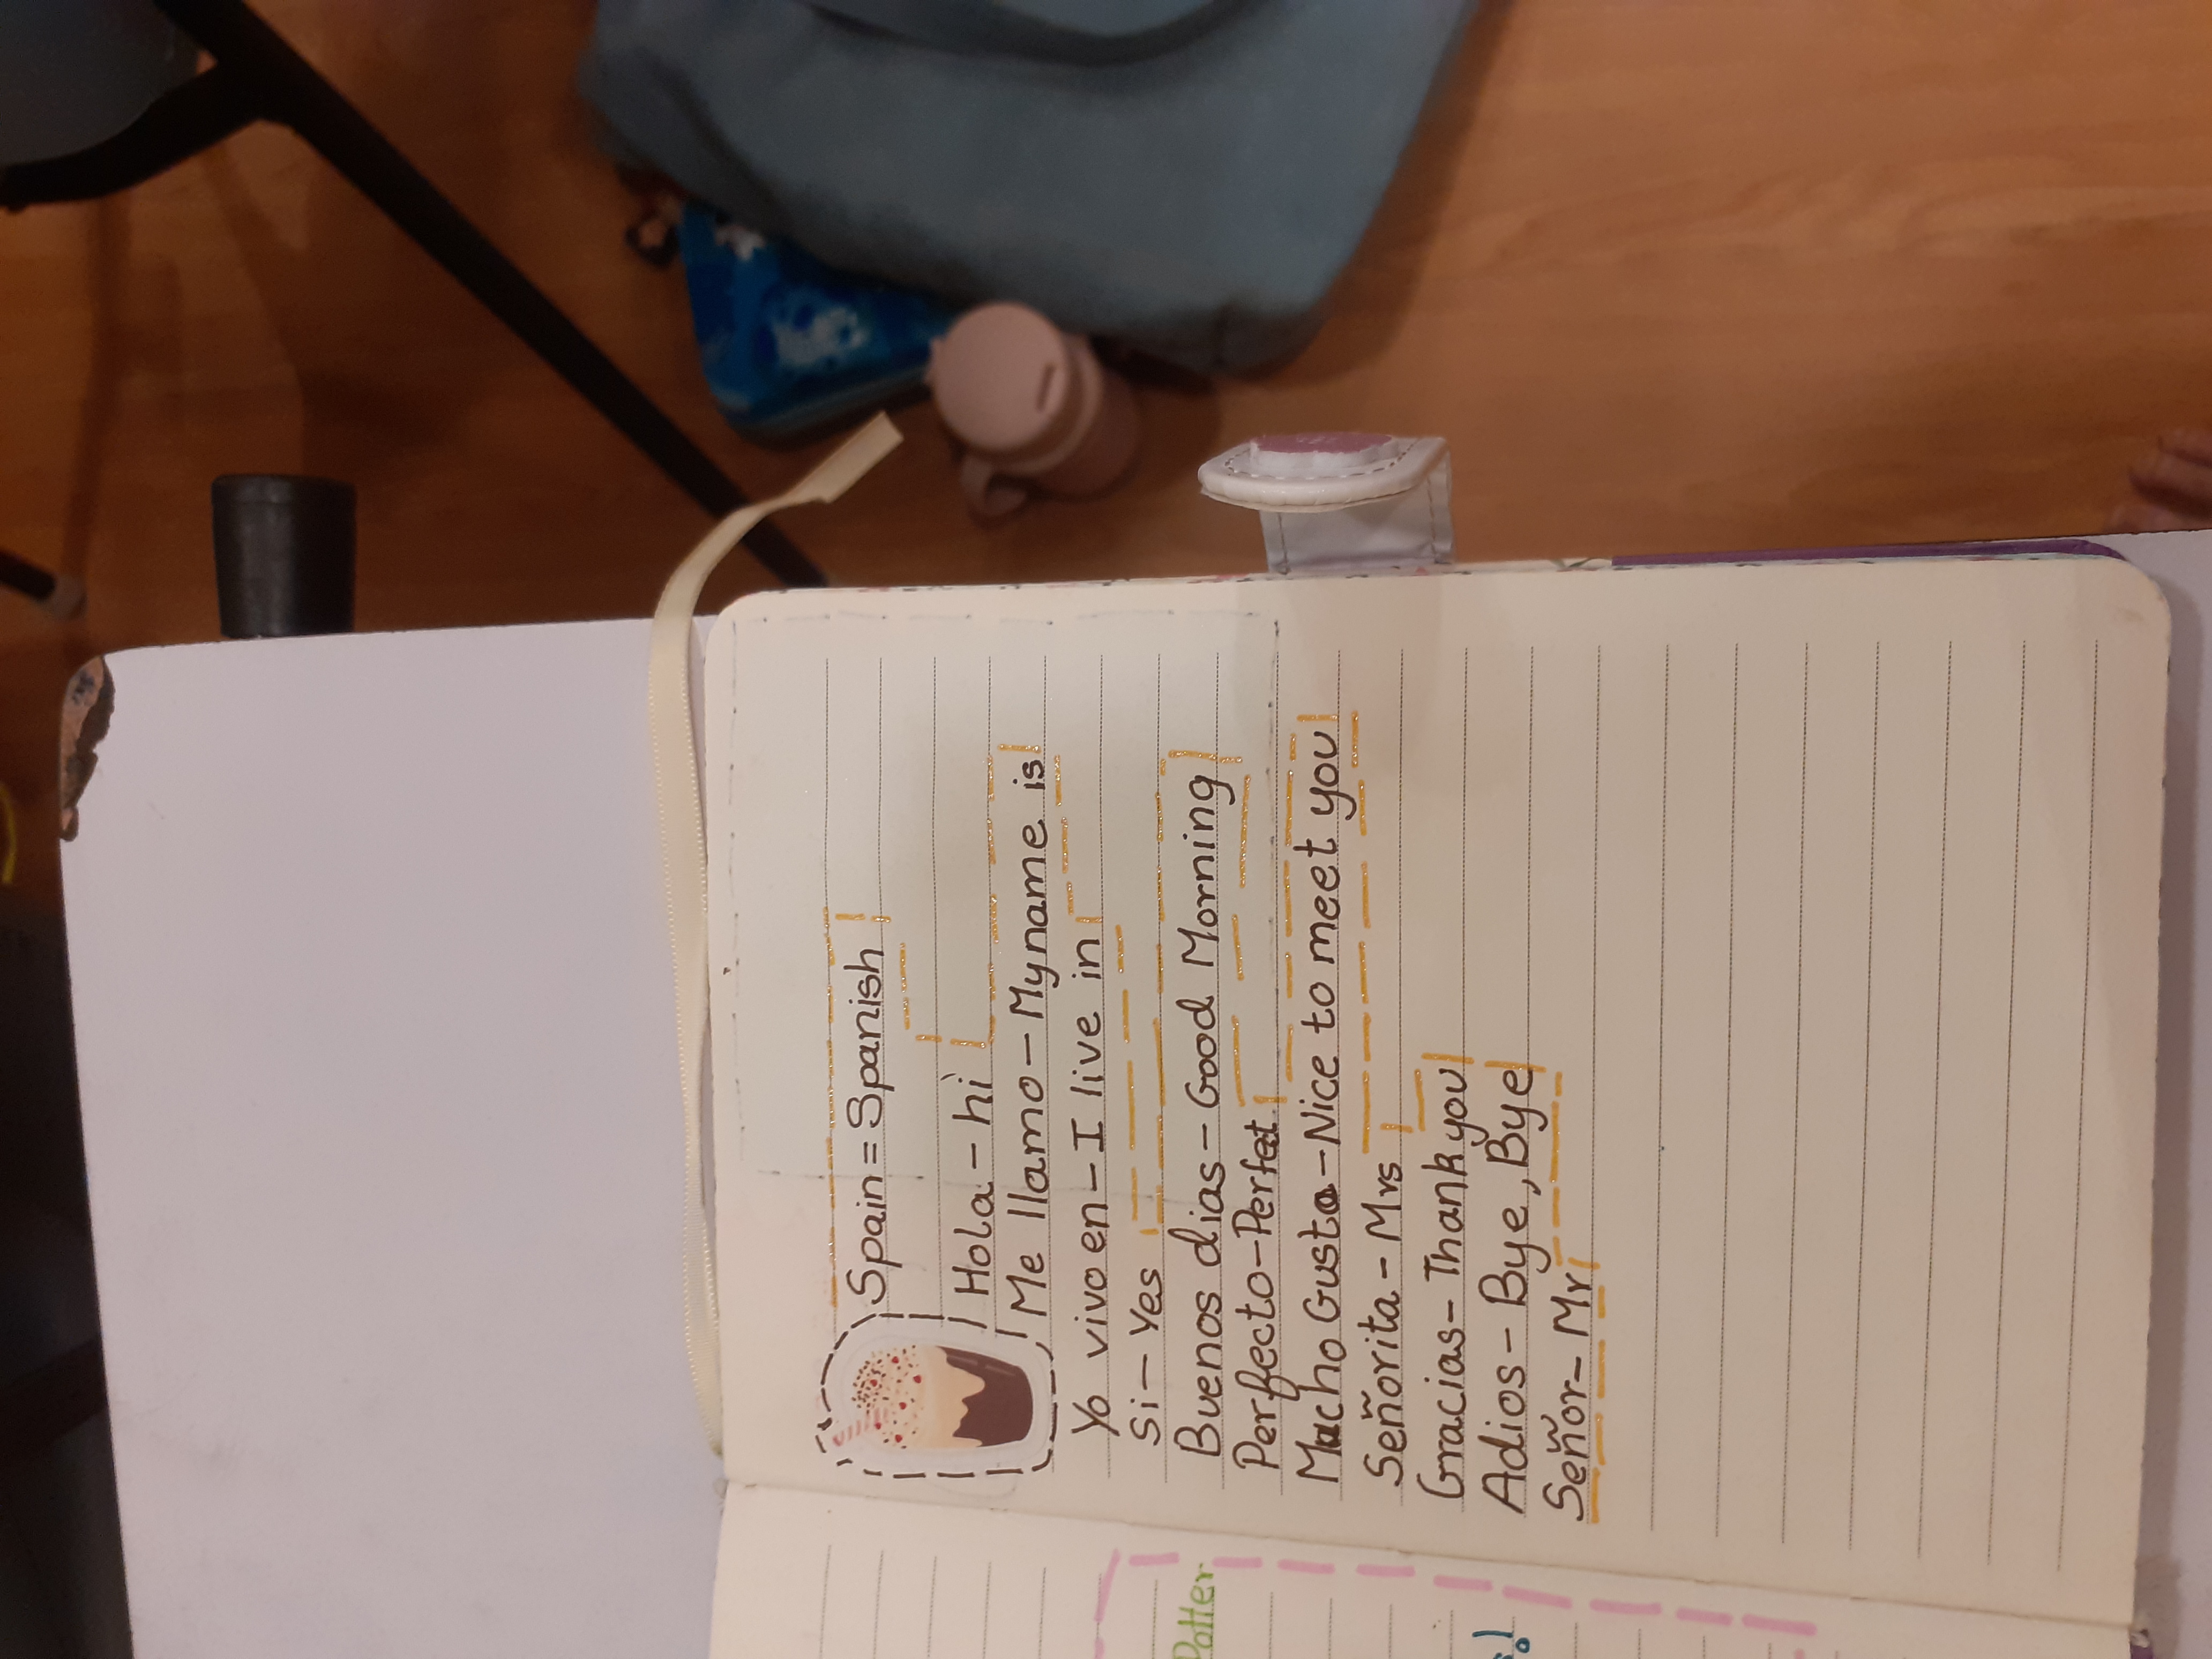 Spain = Spanish
Hola - hi
Me llamo - My name is
Yo vivo en - I live in
Si - Yes
Buenos dias - Good Morning
Perfecto - Perfect
Mucho Gusto - Nice to meet you
Señorita - Mrs
Gracias - Thank you
Adios - Bye, Bye
Señor - Mr
Potter